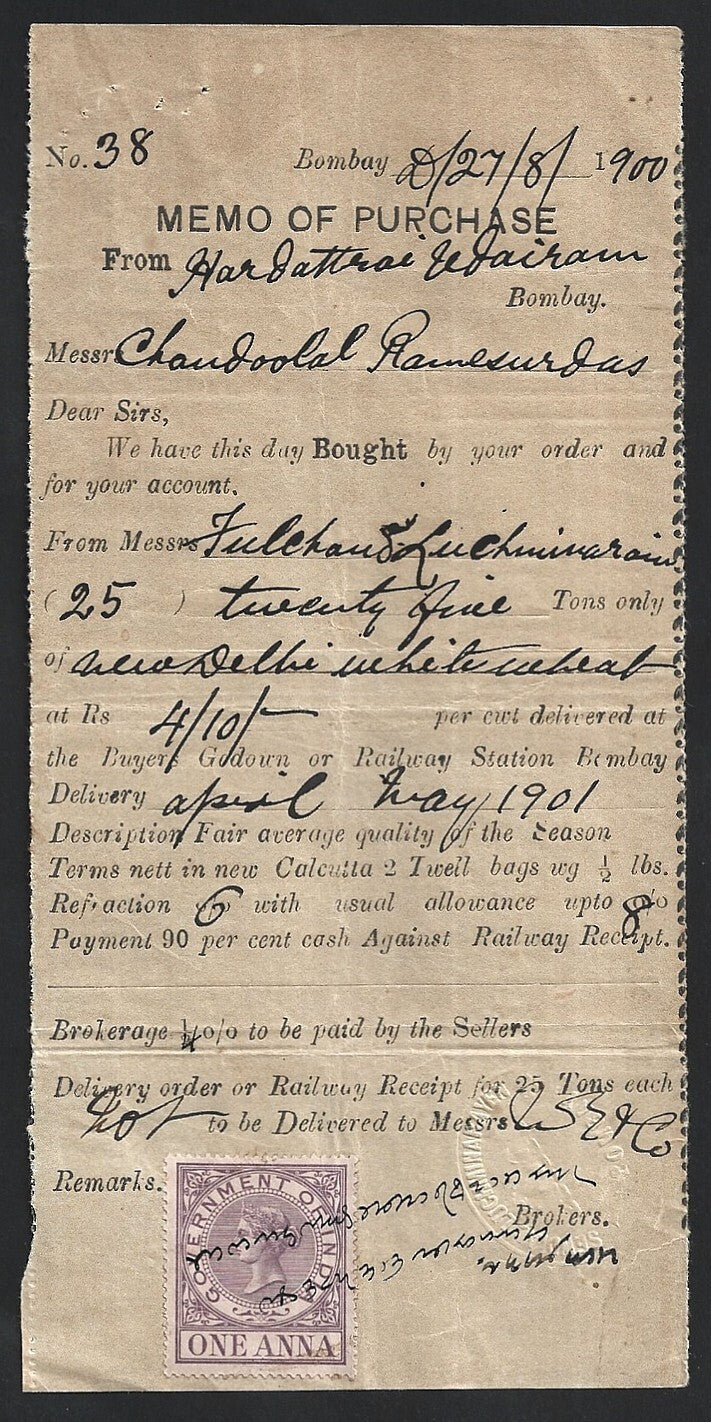 No. 38 Bombay D/27/8/ 1900
MEMO OF PURCHASE
From Hardattrai Udairam
Bombay.
Messrs Chandoolal Ramesurdas
Dear Sirs,
We have this day Bought by your order and
for your account.
From Messrs Fulchand Luchminarain
(25) twenty five Tons only
of new Delhi white wheat
at Rs 4/10/- per cwt delivered at
the Buyers Godown or Railway Station Bombay
Delivery april May 1901
Description Fair average quality of the Season
Terms nett in new Calcutta 2 Twell bags wg ½ lbs.
Refraction 6 with usual allowance upto 8 o/o
Payment 90 per cent cash Against Railway Receipt.
Brokerage ¼ o/o to be paid by the Sellers
Delivery order or Railway Receipt for 25 Tons each
to be Delivered to Messrs & Co
Remarks.
Brokers.
GOVERNMENT OF INDIA
ONE ANNA